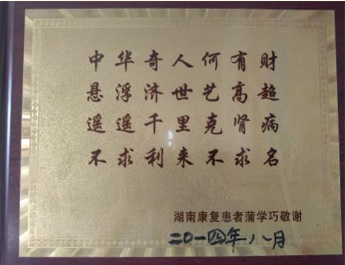 中华奇人何有财
悬浮济世艺高超
遥遥千里克肾病
不求利来不求名
湖南康复患者蒲学巧敬谢
二〇一四年八月